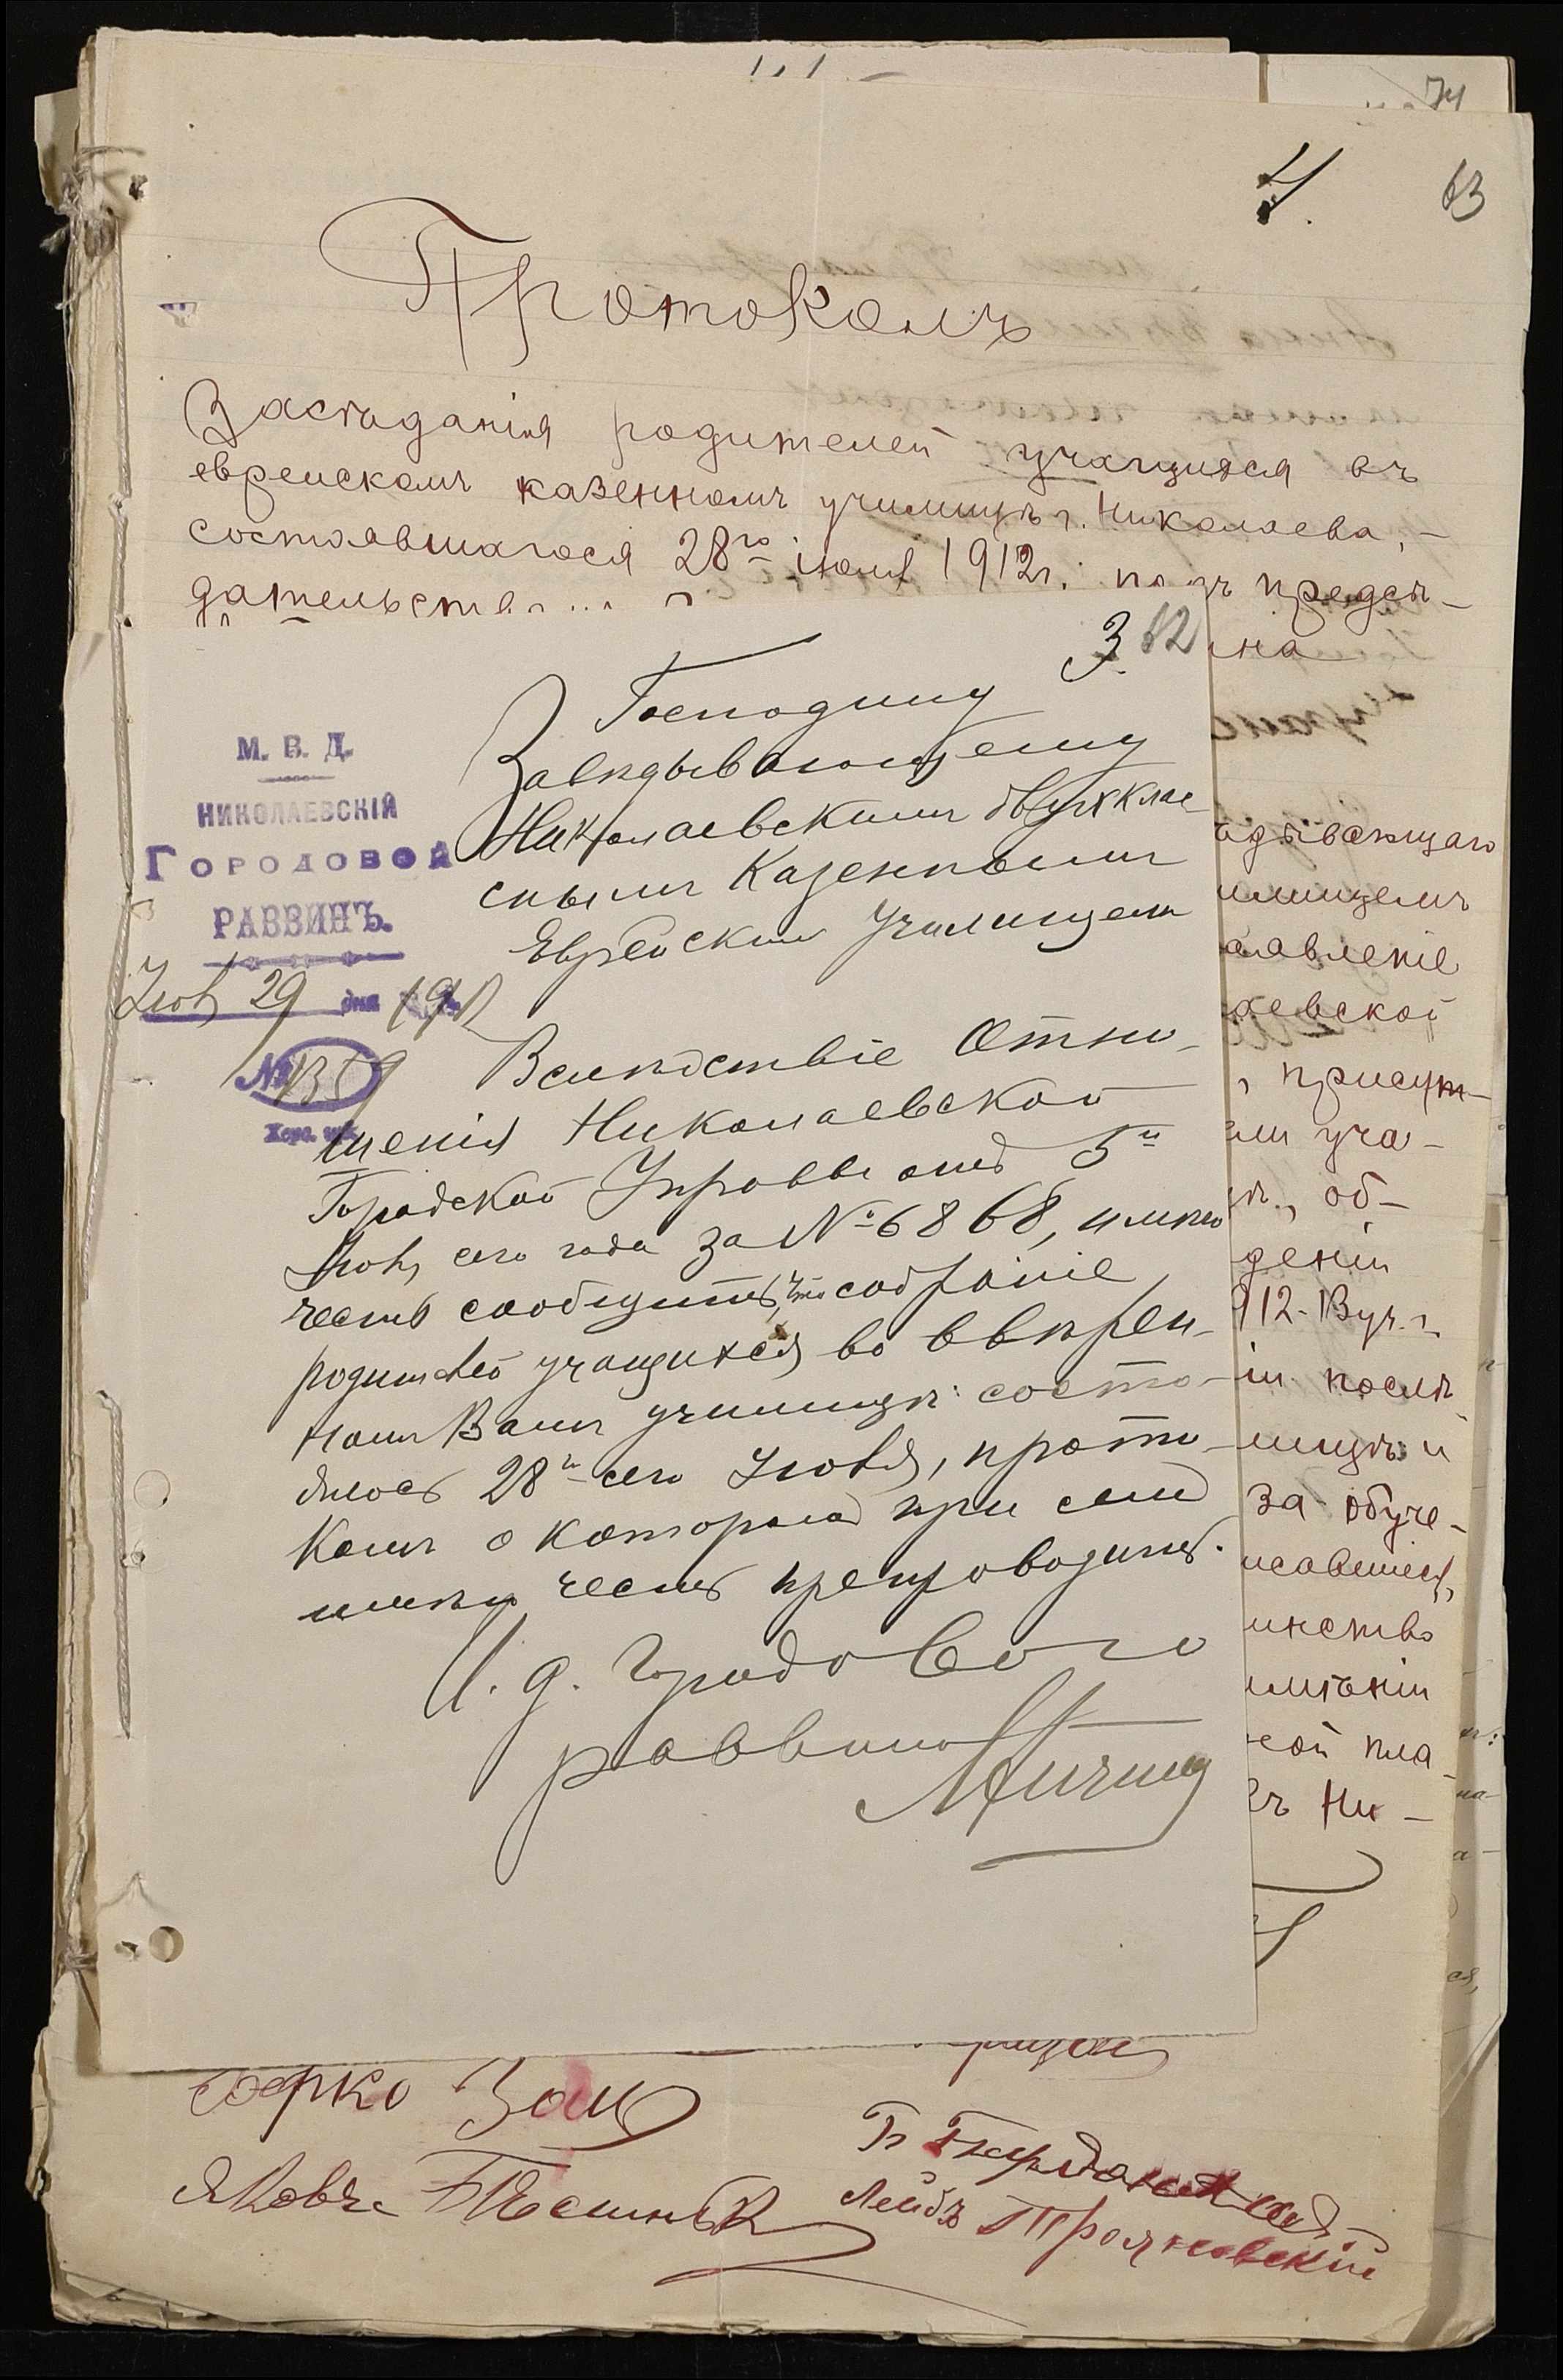 74
4. 63
Протоколъ
Засѣданія родителей учащихся въ
еврейскомъ казенномъ училищѣ г. Николаева, -
состоявшагося 28го іюля 1912 г. подъ предсѣ-
дательств
3. 62
на
Господину
Завѣдывающему
Николаевскимъ двухклас-
снымъ Казеннымъ
Еврейскимъ Училищемъ
М. В. Д.
НИКОЛАЕВСКІЙ
ГОРОДОВОЙ
РАВВИНЪ.
29 дня 1912
№ 1359
Херс. губ.
Вслѣдствіе Отно-
шенія Николаевской
Городской Управы отъ 5го
сего года за № 6868, имѣю
честь сообщить, что собраніе
родителей учащихся во ввѣрен-
номъ Вамъ училищѣ состо-
ялось 28го сего Іюля, прото-
колъ о которомъ при семъ
имѣю честь препроводить.
И. д. Городового
раввина
ѣдывающаго
илищемъ
заявленіе
аевской
, присут-
ли уча-
об-
деніи
912-13 уч. г.
іи послѣ
лищѣ и
за обуче-
исавшіеся,
инство
имѣніи
ной пла-
Ни-
Зац
Яковъ
Лейбъ Трояновскій